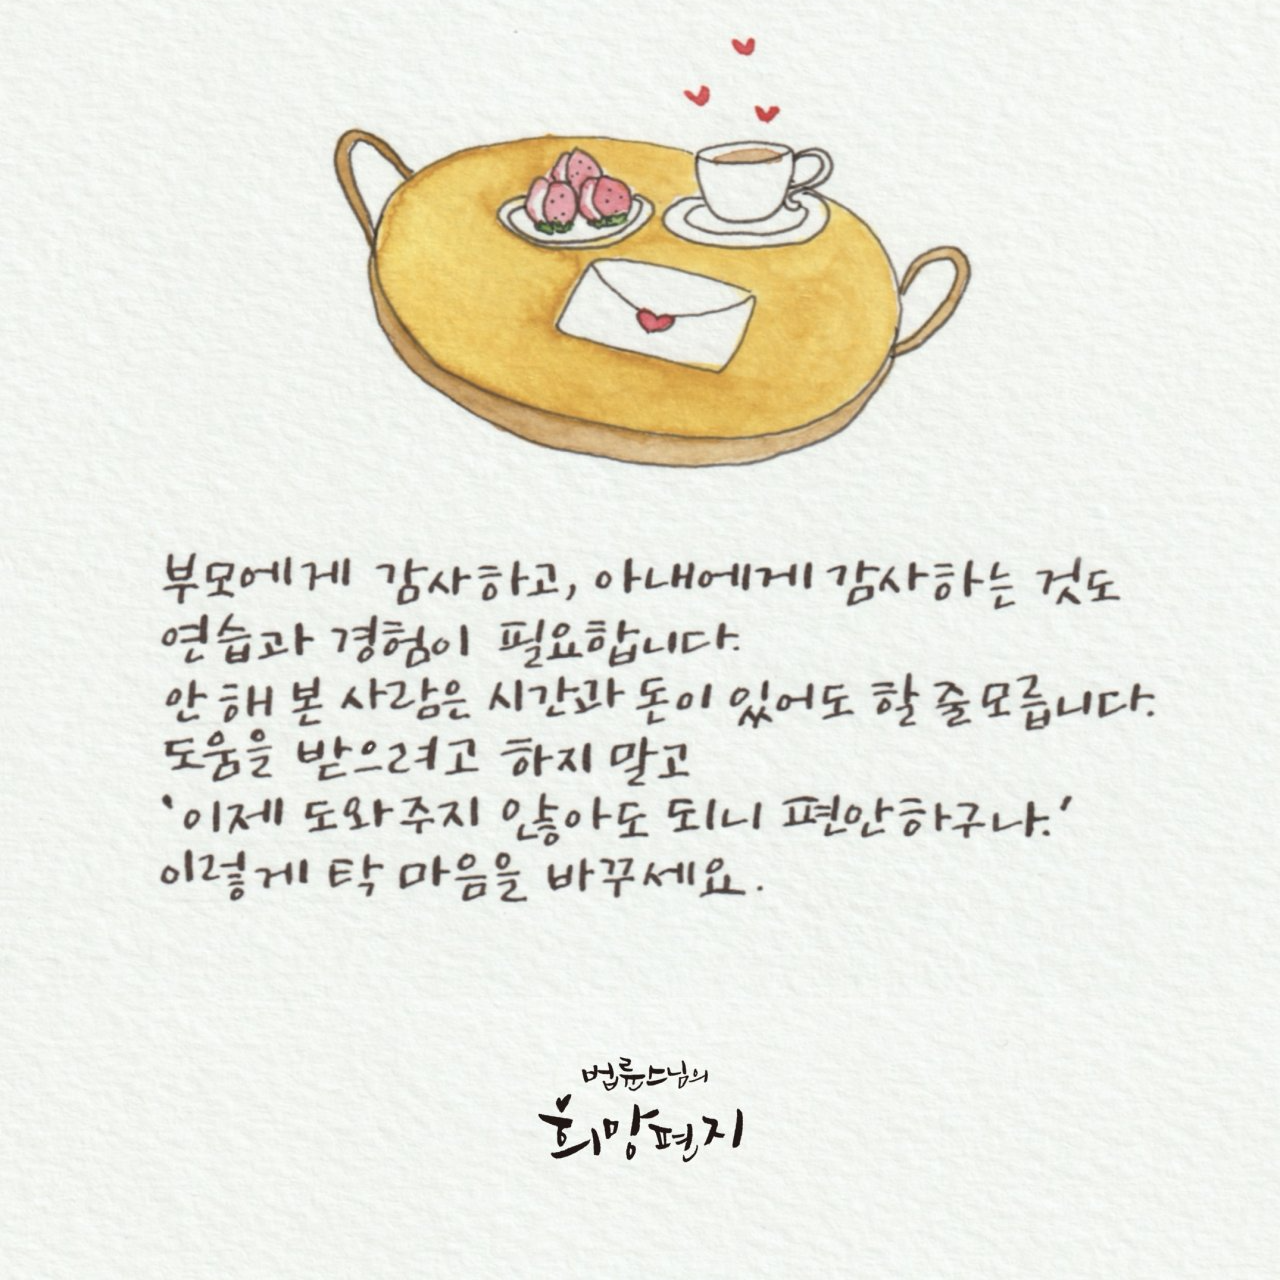 부모에게 감사하고, 아내에게 감사하는 것도
연습과 경험이 필요합니다.
안 해 본 사람은 시간과 돈이 있어도 할 줄 모릅니다.
도움을 받으려고 하지 말고
'이제 도와주지 않아도 되니 편안하구나.'
이렇게 탁 마음을 바꾸세요.
법륜스님의
희망편지